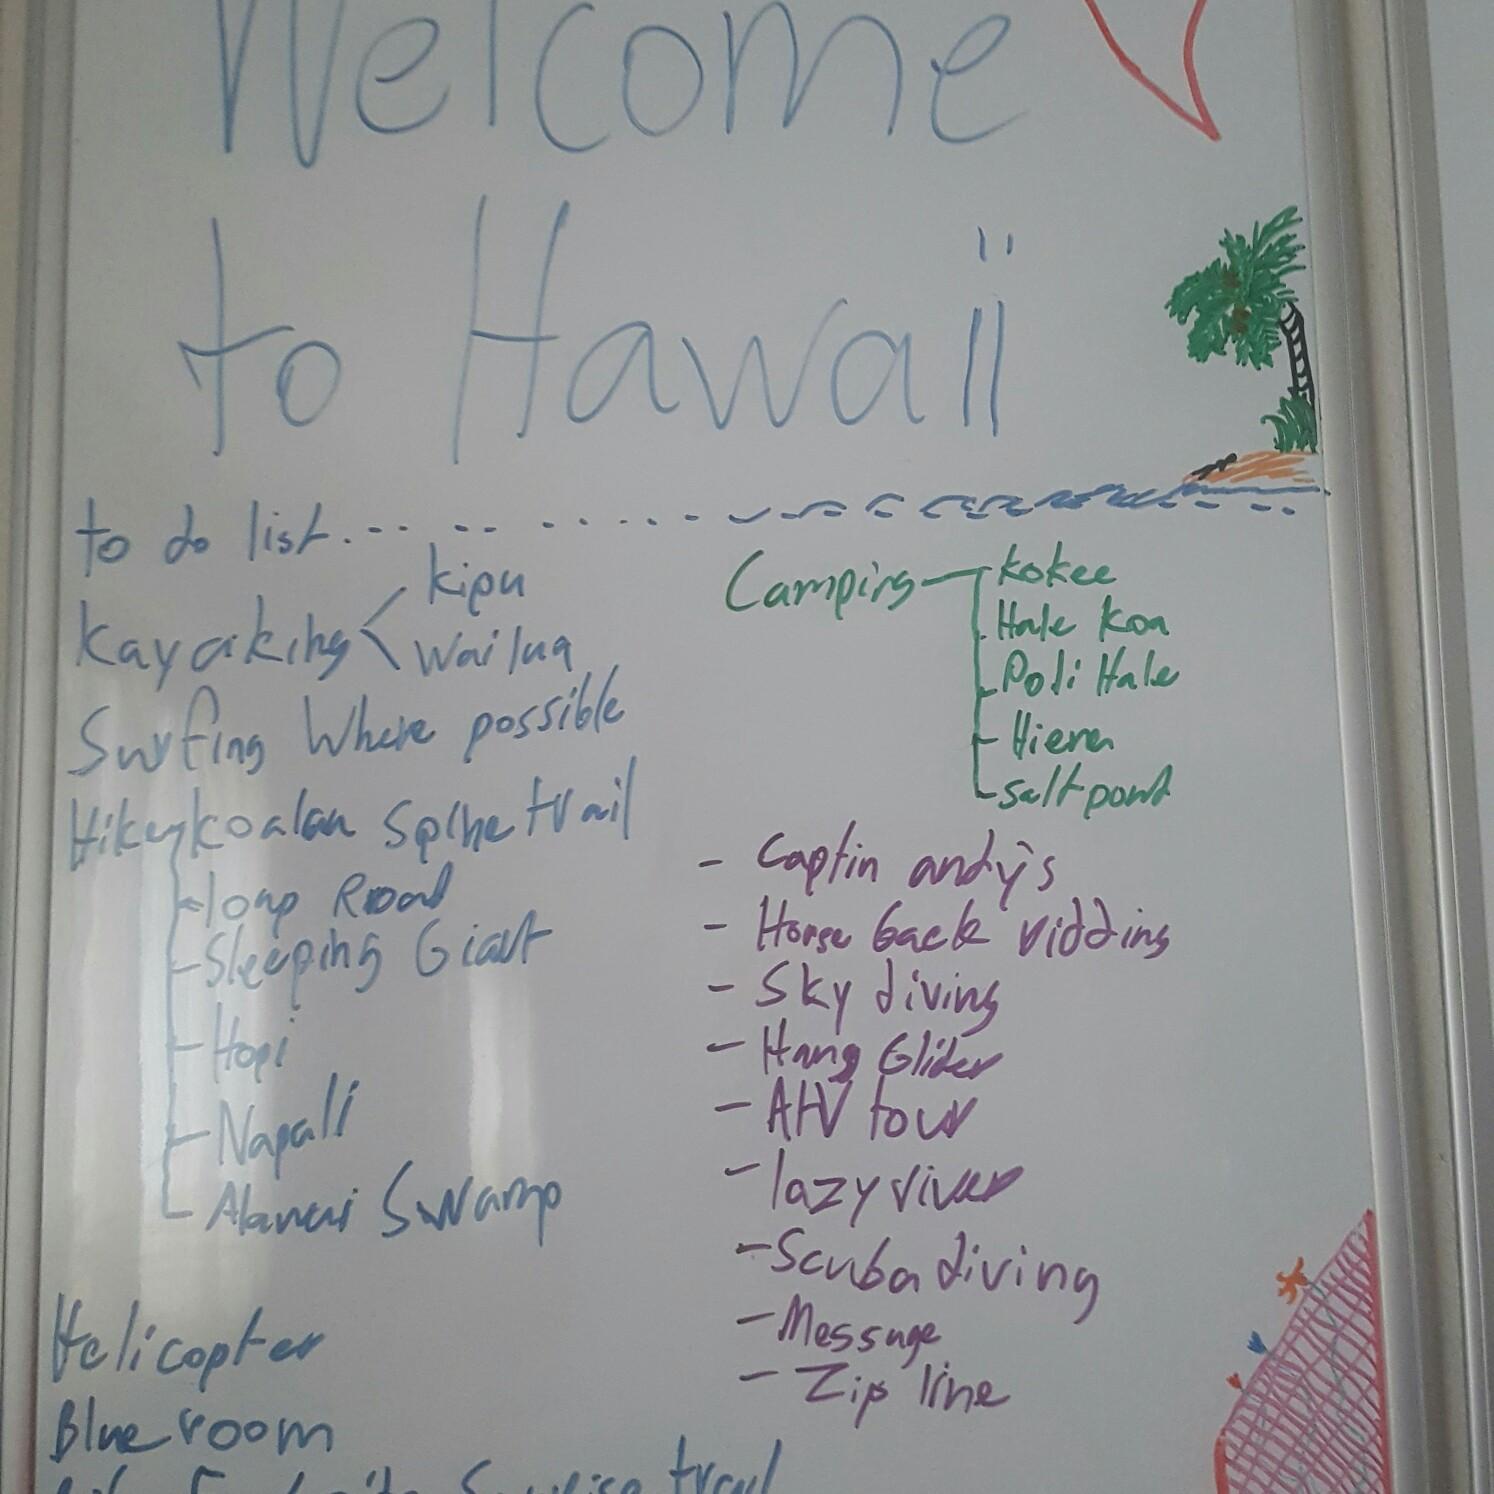 Welcome
to Hawaii
to do list
Kayaking
Kipu
Wailua
Surfing Where possible
Hike koalau Spine trail
loop Road
Sleeping Giant
Hopi
Napali
Swamp
Helicopter
Blue room
Sunrise trail
Camping
Kokee
Hale Koa
Poli Hale
salt pont
- Captin andy's
- Horse back ridding
- Sky diving
- Hang Glider
- AtV tour
- lazy river
- Scuba diving
- Messuge
- Zip line